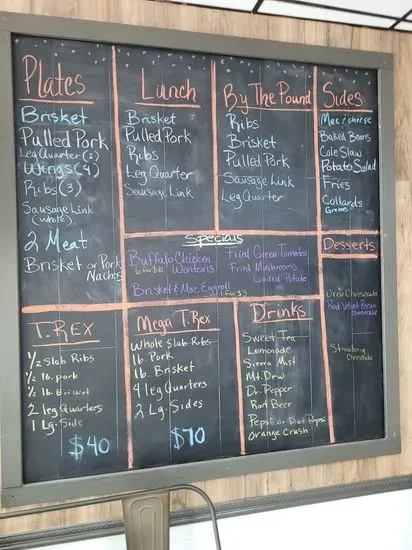 Plates
Brisket
Pulled Pork
Leg Quarter (2)
Wings (4)
Ribs (3)
Sausage Link
(whole)
2 Meat
Brisket or Pork
Nachos
Lunch
Brisket
Pulled Pork
Ribs
Leg Quarter
Sausage Link
By The Pound
Ribs
Brisket
Pulled Pork
Sausage Link
Leg Quarter
Sides
Mac & cheese
Baked Beans
Cole Slaw
Potato Salad
Fries
Collards
Greens
Specials
Buffalo Chicken
6 for $10 Wontons
Brisket & Mac Eggroll
1 for $3
Fried Green Tomatoes
Fried Mushrooms
Loaded Potato
Desserts
Oreo Cheesecake
Red Velvet
Cheesecake
Strawberry
Cheesecake
T.REX
1/2 Slab Ribs
1/2 lb. pork
1/2 lb. Brisket
2 leg Quarters
1 Lg. Side
$40
Mega T.Rex
Whole Slab Ribs
lb. Pork
lb. Brisket
4 leg Quarters
2 Lg. Sides
$70
Drinks
Sweet Tea
Lemonade
Sierra Mist
Mt. Dew
Dr. Pepper
Root Beer
Pepsi or Diet Pepsi
Orange Crush